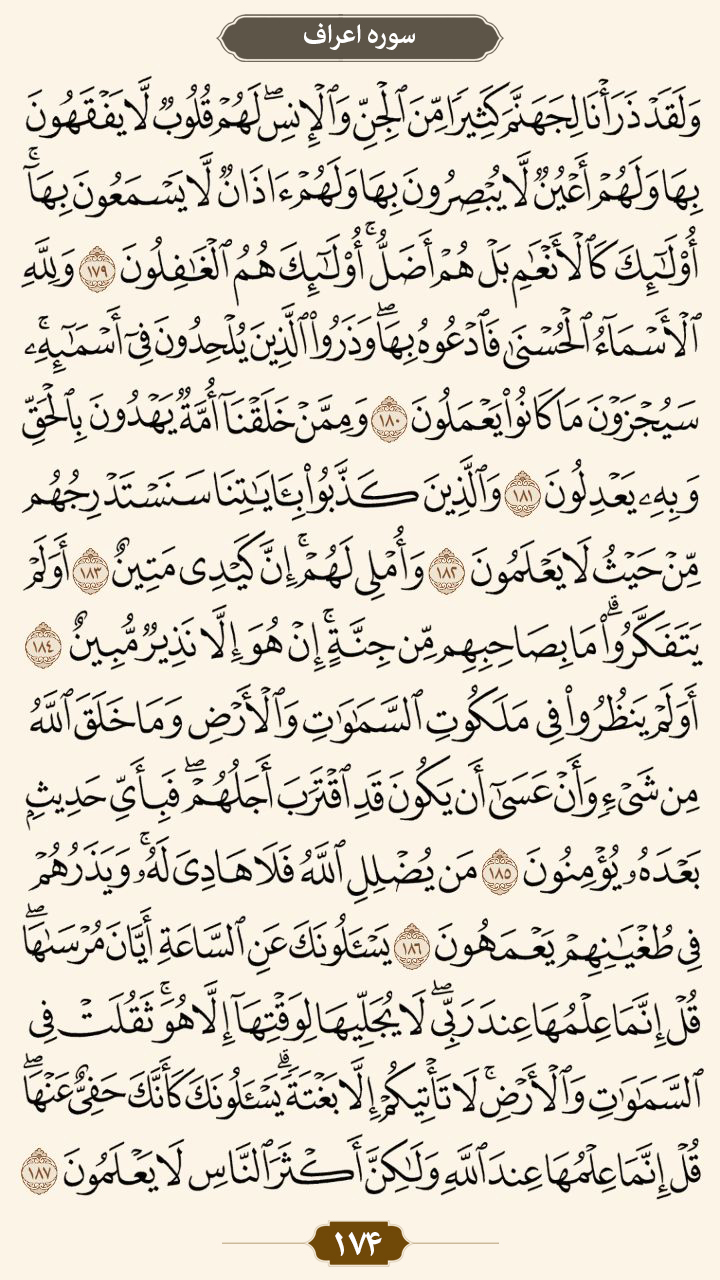 سوره اعراف
وَلَقَدۡ ذَرَأۡنَا لِجَهَنَّمَ كَثِيرٗا مِّنَ ٱلۡجِنِّ وَٱلۡإِنسِۖ لَهُمۡ قُلُوبٞ لَّا يَفۡقَهُونَ
بِهَا وَلَهُمۡ أَعۡيُنٞ لَّا يُبۡصِرُونَ بِهَا وَلَهُمۡ ءَاذَانٞ لَّا يَسۡمَعُونَ بِهَآۚ
أُوْلَٰٓئِكَ كَٱلۡأَنۡعَٰمِ بَلۡ هُمۡ أَضَلُّۚ أُوْلَٰٓئِكَ هُمُ ٱلۡغَٰفِلُونَ ١٧٩ وَلِلَّهِ
ٱلۡأَسۡمَآءُ ٱلۡحُسۡنَىٰ فَٱدۡعُوهُ بِهَاۖ وَذَرُواْ ٱلَّذِينَ يُلۡحِدُونَ فِيٓ أَسۡمَٰٓئِهِۦۚ
سَيُجۡزَوۡنَ مَا كَانُواْ يَعۡمَلُونَ ١٨٠ وَمِمَّنۡ خَلَقۡنَآ أُمَّةٞ يَهۡدُونَ بِٱلۡحَقِّ
وَبِهِۦ يَعۡدِلُونَ ١٨١ وَٱلَّذِينَ كَذَّبُواْ بِـَٔايَٰتِنَا سَنَسۡتَدۡرِجُهُم
مِّنۡ حَيۡثُ لَا يَعۡلَمُونَ ١٨٢ وَأُمۡلِي لَهُمۡۚ إِنَّ كَيۡدِي مَتِينٌ ١٨٣ أَوَلَمۡ
يَتَفَكَّرُواْۗ مَا بِصَاحِبِهِم مِّن جِنَّةٍۚ إِنۡ هُوَ إِلَّا نَذِيرٞ مُّبِينٌ ١٨٤
أَوَلَمۡ يَنظُرُواْ فِي مَلَكُوتِ ٱلسَّمَٰوَٰتِ وَٱلۡأَرۡضِ وَمَا خَلَقَ ٱللَّهُ
مِن شَيۡءٖ وَأَنۡ عَسَىٰٓ أَن يَكُونَ قَدِ ٱقۡتَرَبَ أَجَلُهُمۡۖ فَبِأَيِّ حَدِيثِۭ
بَعۡدَهُۥ يُؤۡمِنُونَ ١٨٥ مَن يُضۡلِلِ ٱللَّهُ فَلَا هَادِيَ لَهُۥۚ وَيَذَرُهُمۡ
فِي طُغۡيَٰنِهِمۡ يَعۡمَهُونَ ١٨٦ يَسۡـَٔلُونَكَ عَنِ ٱلسَّاعَةِ أَيَّانَ مُرۡسَىٰهَاۖ
قُلۡ إِنَّمَا عِلۡمُهَا عِندَ رَبِّيۖ لَا يُجَلِّيهَا لِوَقۡتِهَآ إِلَّا هُوَۚ ثَقُلَتۡ فِي
ٱلسَّمَٰوَٰتِ وَٱلۡأَرۡضِۚ لَا تَأۡتِيكُمۡ إِلَّا بَغۡتَةٗۗ يَسۡـَٔلُونَكَ كَأَنَّكَ حَفِيٌّ عَنۡهَاۖ
قُلۡ إِنَّمَا عِلۡمُهَا عِندَ ٱللَّهِ وَلَٰكِنَّ أَكۡثَرَ ٱلنَّاسِ لَا يَعۡلَمُونَ ١٨٧
۱۷۴